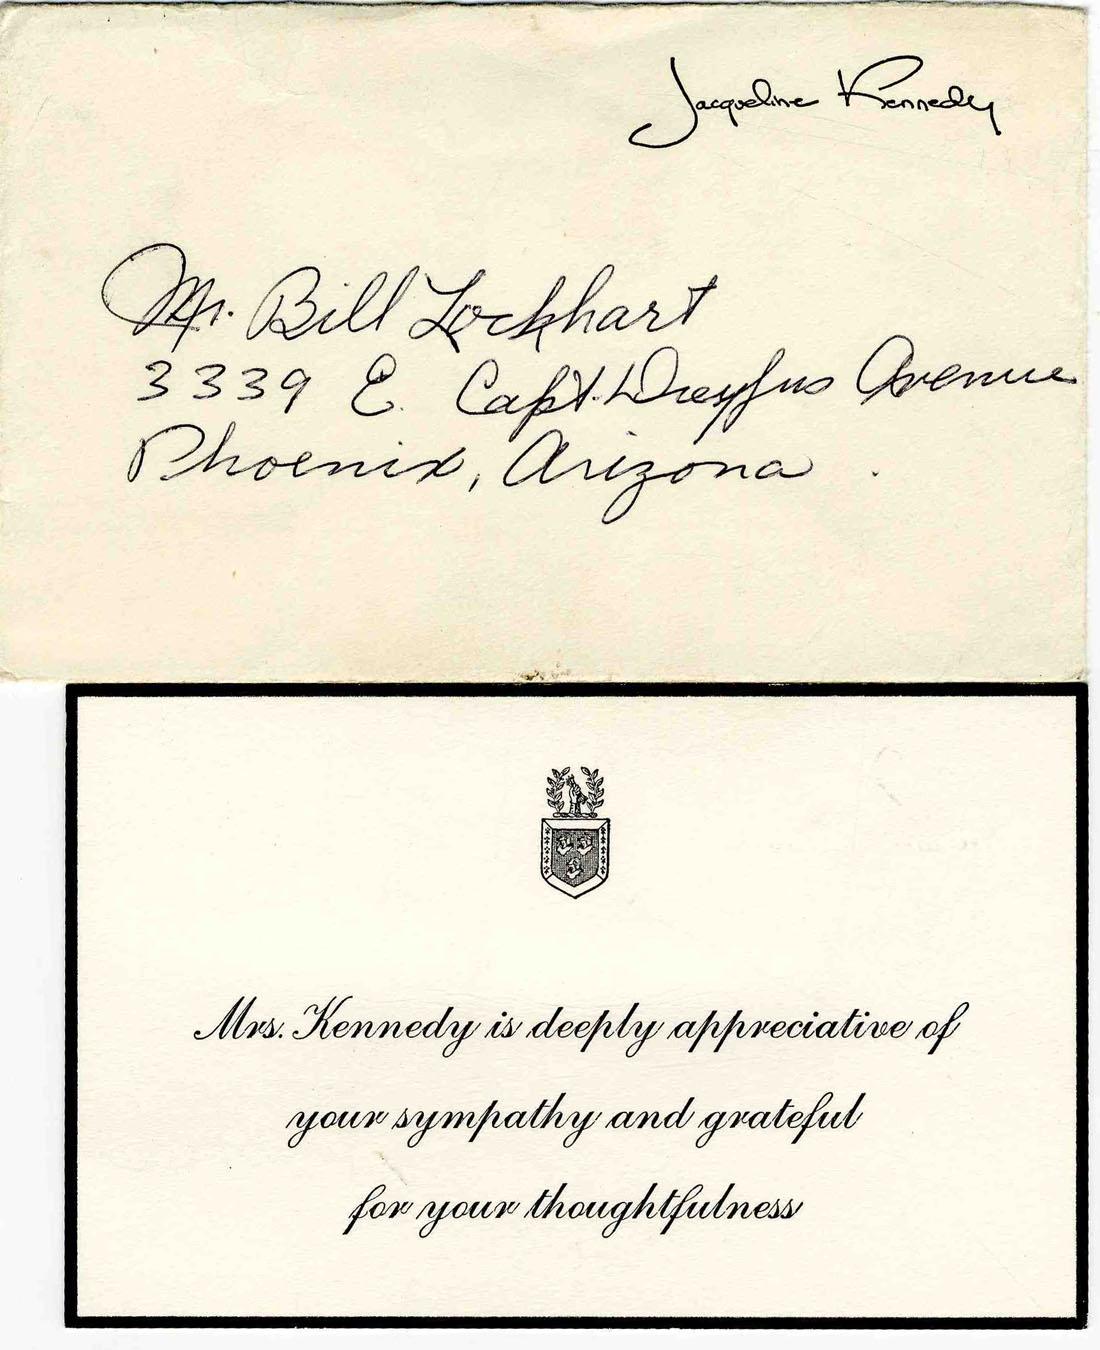 Jacqueline Kennedy
Mr. Bill Lockhart
3339 E. Capt. Dreyfus Avenue
Phoenix, Arizona
Mrs. Kennedy is deeply appreciative of
your sympathy and grateful
for your thoughtfulness